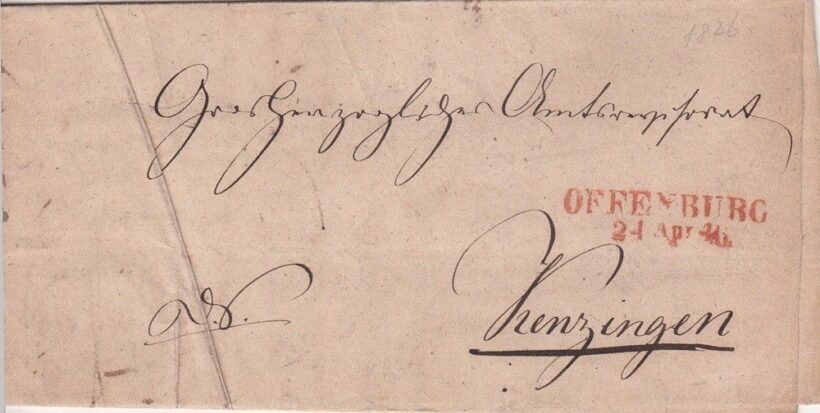 1826
Grosherzogliches Amtsrevisorat
OFFENBURG
24 Apr 46.
D. S.
Kenzingen